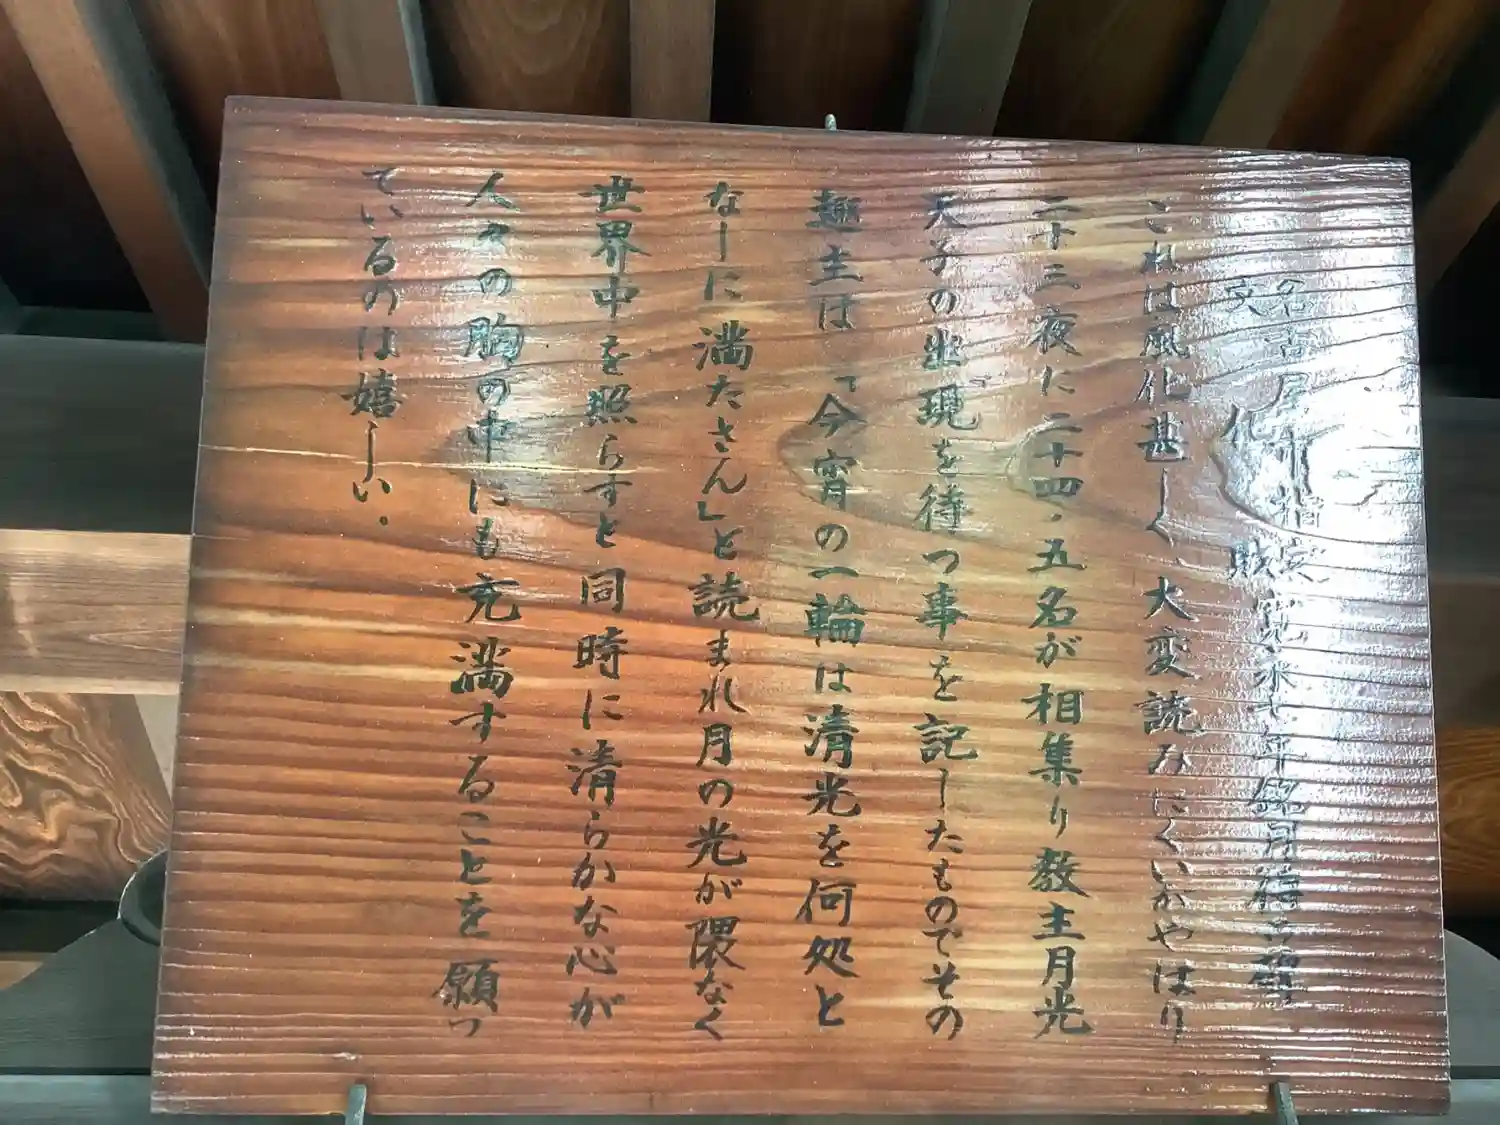 名古屋市指定 寛永七年銘月待の碑
文化財
これは風化甚しく、大変読みにくいがやはり
二十三夜に二十四・五名が相集り教主月光
天子の出現を待つ事を記したものでその
趣主は「今宵の一輪は清光を何処と
なしに満たさん」と読まれ月の光が隈なく
世界中を照らすと同時に清らかな心が
人々の胸の中にも充満することを願っ
ているのは嬉しい。